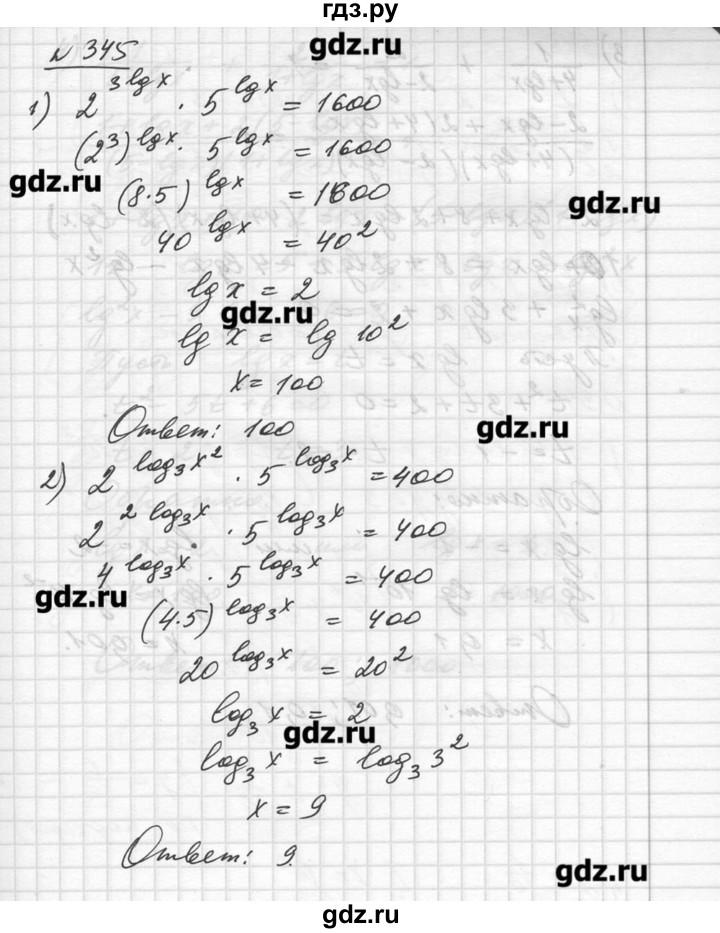 гдз.ру
gdz.ru
№ 345
1) 2^{3 lg x} · 5^{lg x} = 1600
(2^3)^{lg x} · 5^{lg x} = 1600
gdz.ru
(8·5)^{lg x} = 1600
gdz.ru
40^{lg x} = 40^2
lg x = 2
gdz.ru
lg x = lg 10^2
x = 100
Ответ: 100
gdz.ru
2) 2^{log_3 x^2} · 5^{log_3 x} = 400
2^{2 log_3 x} · 5^{log_3 x} = 400
4^{log_3 x} · 5^{log_3 x} = 400
gdz.ru
(4·5)^{log_3 x} = 400
20^{log_3 x} = 20^2
log_3 x = 2
gdz.ru
log_3 x = log_3 3^2
x = 9
Ответ: 9.
gdz.ru
gdz.ru